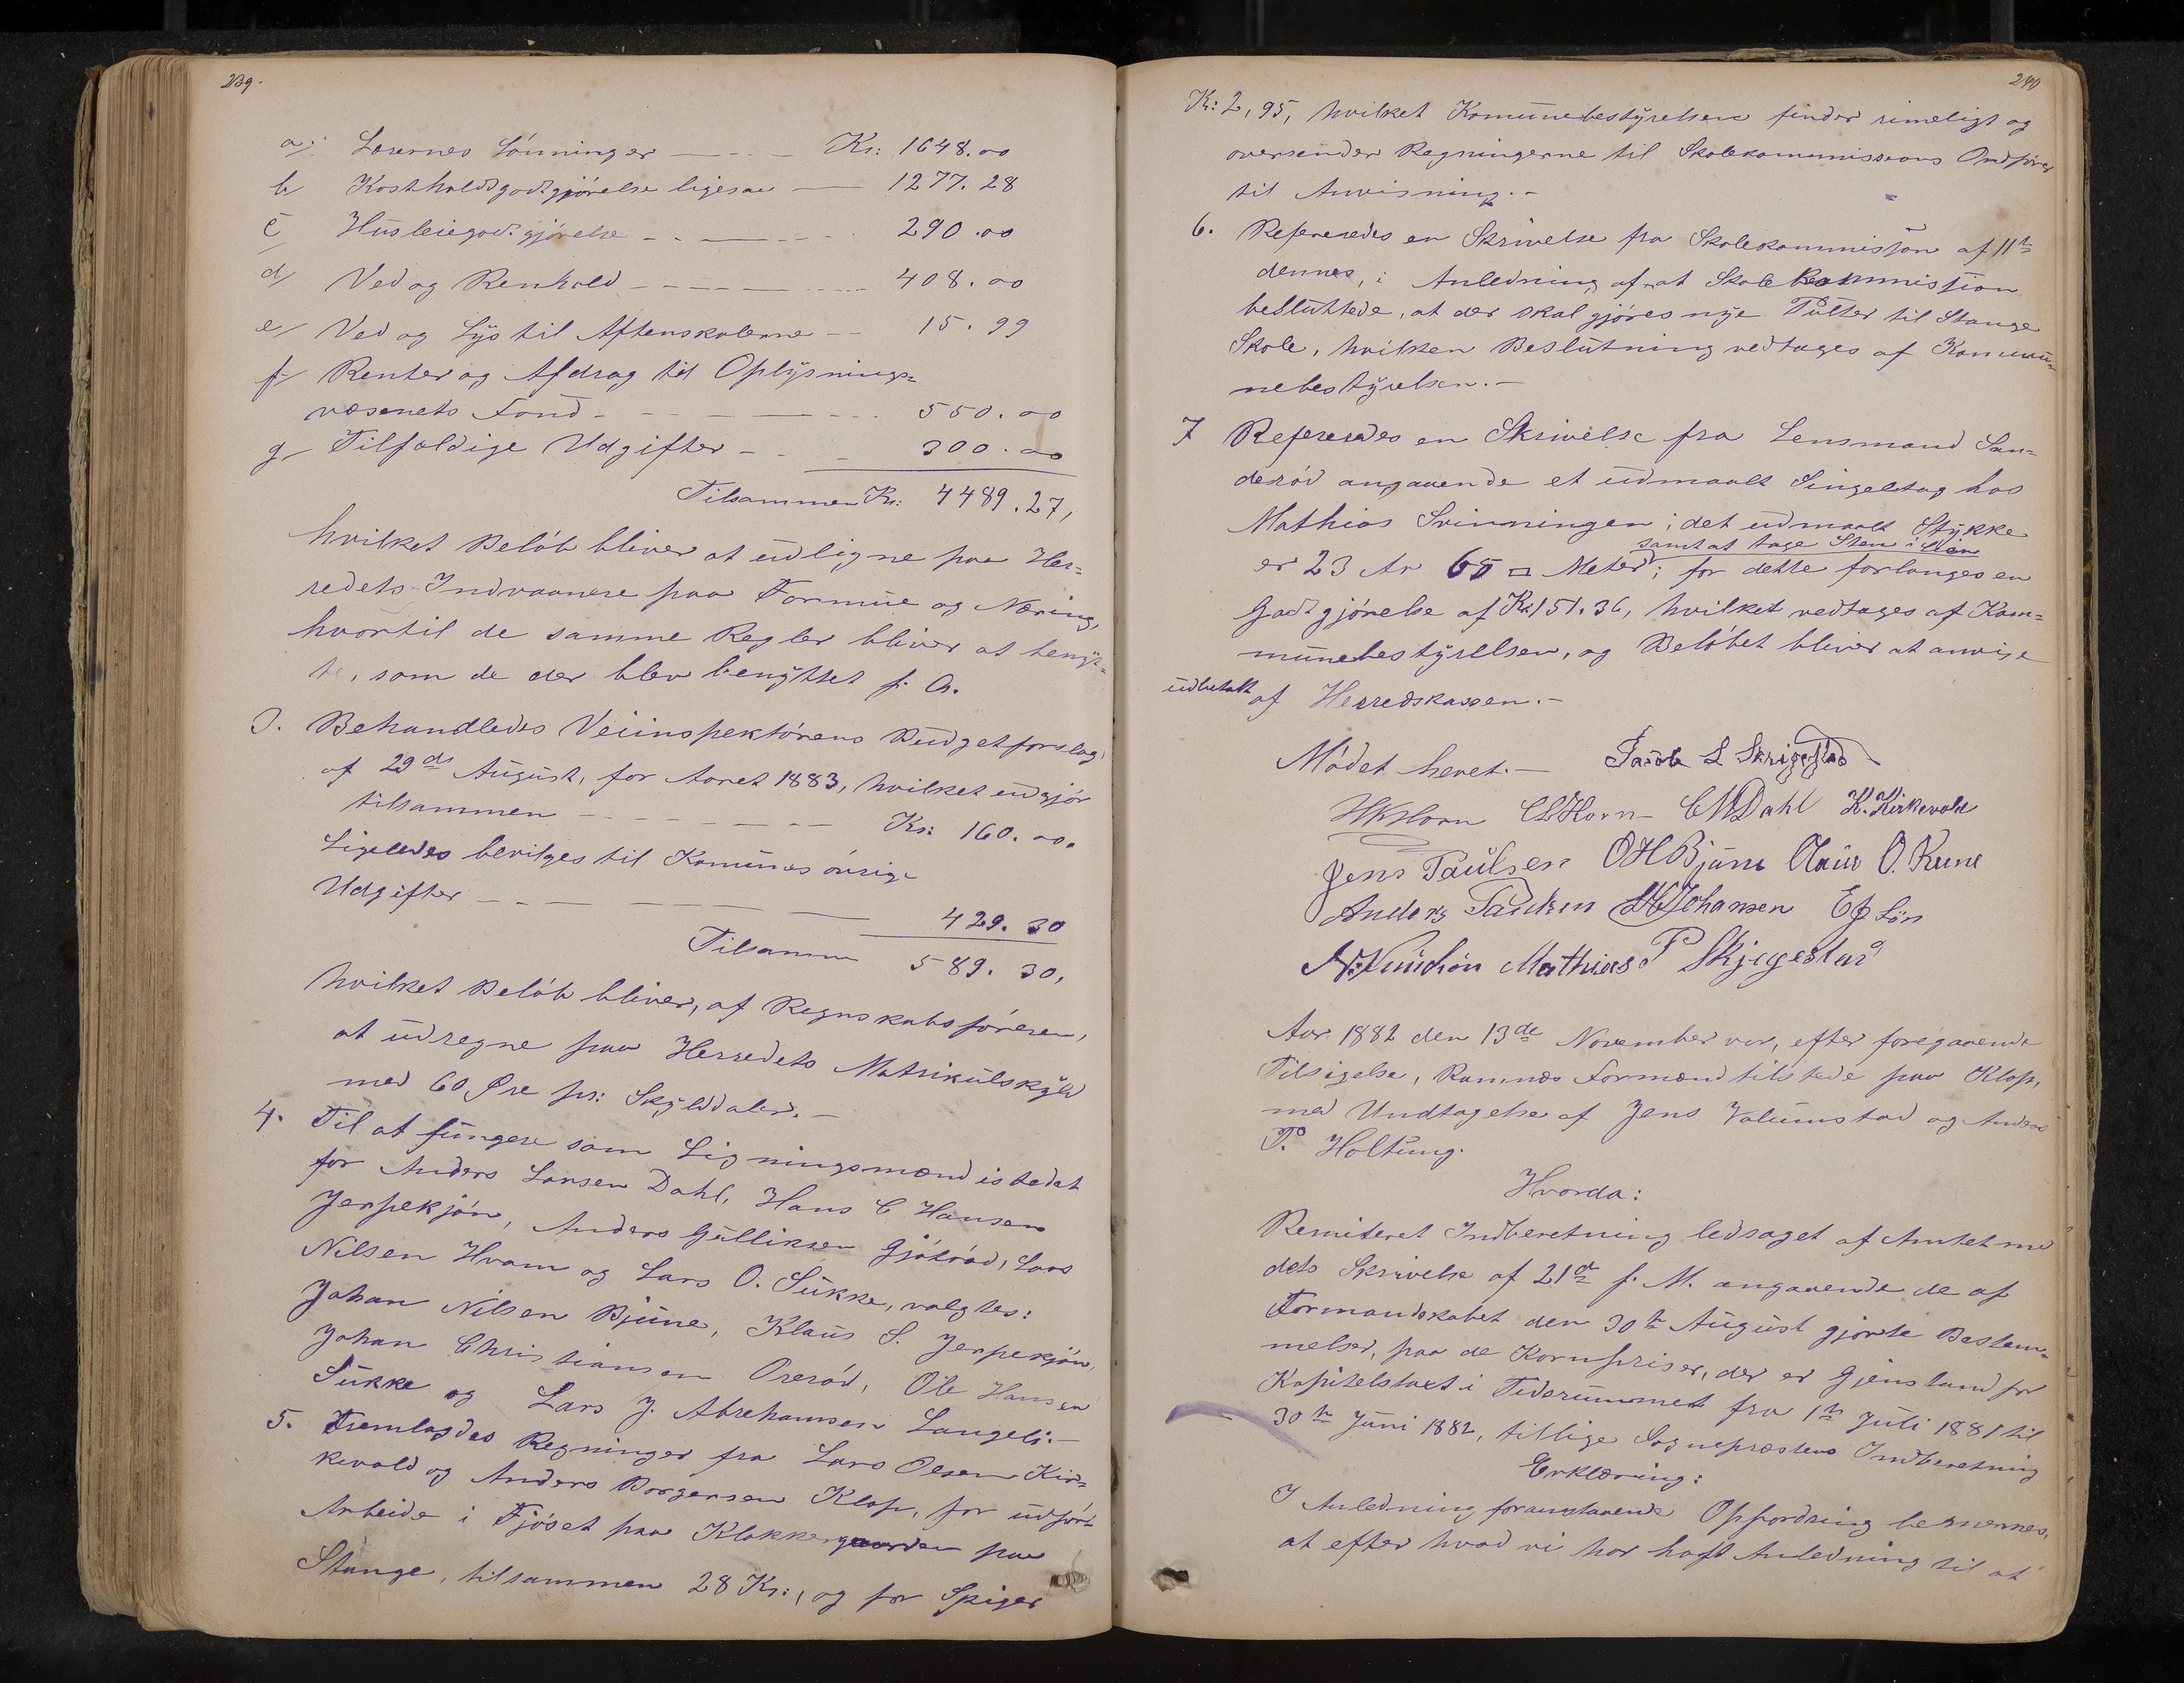 239.
a. Lærernes Lønninger — Kr: 1648.00
b Kostholdsgodtgjørelse ligesaa — 1277.28
c Husleiegodtgjørelse — 290.00
d Ved og Renhold — 408.00
e Ved og Lys til Aftenskolerne — 15.99
f Renter og Afdrag til Oplysnings=
væsenets Fond — 550.00
g Tilfældige Udgifter — 300.00
Tilsammen Kr: 4489.27,
hvilket Beløb bliver at udligne paa Her=
redets Indvaanere paa Formue og Næring,
hvortil de samme Regler bliver at benyt=
te, som de der blev benyttet f. A.
3. Behandledes Veiinspektørens Budgetforslag
af 29de August, for Aaret 1883, hvilket udgjør
tilsammen — Kr: 160.00.
Ligeledes bevilges til Komunes øvrige
Udgifter — 429.30
Tilsammen 589.30,
hvilket Beløb bliver, af Regnskabsføreren,
at udregne paa Herredets Matrikulskyld
med 60 Øre pr: Skylddaler. —
4. Til at fungere som Ligningsmænd istedet
for Anders Larsen Dahl, Hans C Hansen
Jerpekjøn, Anders Gulliksen Gjøterød, Lars
Nilsen Hvam og Lars O. Sukke, valgtes:
Johan Nilsen Bjune, Klaus S. Jerpekjøn,
Johan Christiansen Ørerød, Ole Hansen
Sukke og Lars J. Abrehamsen Langeli. —
5. Fremlagdes Regninger fra Lars Olsen Kir=
kevold og Anders Borgersen Klop, for udført
Arbeide i Fjøset paa Klokkergaarden paa
Stange, tilsammen 28 Kr:, og for Spiger
240
Kr: 2,95, hvilket Komunebestyrelsen finder rimeligt og
oversender Regningerne til Skolekommissions Ordfører
til Anvisning. —
6. Refereredes en Skrivelse fra Skolekommission af 11te
dennes, i Anledning af at Skolekommission
besluttede, at der skal gjøres nye Pulter til Stange
Skole, hvilken Beslutning vedtages af Kommu=
nebestyrelsen. —
7 Refereredes en Skrivelse fra Lensmand San=
derød angaaende et udmaalt Singeltag hos
Mathias Svinningen; det udmaalt Stykke
samt at tage Sten i
er 23 Ar 65 □ Meter; for dette forlanges en
Godtgjørelse af Kr 151.36, hvilket vedtages af Kom=
munebestyrelsen, og Beløbet bliver at anvise
udbetalt af Herredskassen. —
Mødet hevet. — Jacob L Skrigestad
HKHorn CLHorn CMDahl K. Kirkevold
Jens Paulsen OHBjune Olaus O. Reine
Anders Paulsen Johansen Løn
N. Knudsøn Mathias P Skjegestad
Aar 1882 den 13de November var, efter foregaaende
Tilsigelse, Ramnæs Formænd tilstede paa Klop,
med Undtagelse af Jens Valumstad og Anders
P. Holtung.
Hvorda:
Remitteret Indberetning ledsaget af Amtet med
dets Skrivelse af 21de f. M. angaaende de af
Formandskabet den 30te August gjorte Bestem=
melser, paa de Kornpriser, der er Gjenstand for
Kapitelstaxt i Tidsrummet fra 1te Juli 1881 til
30te Juni 1882, tillige Sognepræstens Indberetning
Erklæring:
I Anledning foranstaaende Opfordring bemærkes,
at efter hvad vi har haft Anledning til at